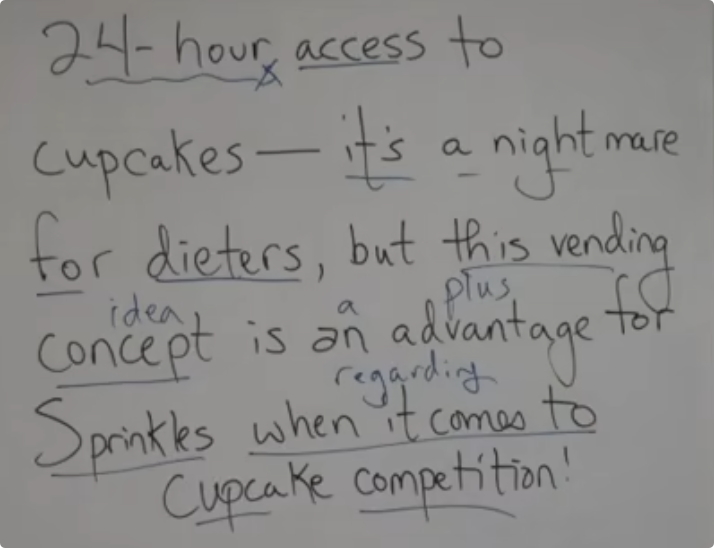 24-hour access to
cupcakes— it's a nightmare
for dieters, but this vending
idea a plus
concept is an advantage for
regarding
Sprinkles when it comes to
Cupcake competition!